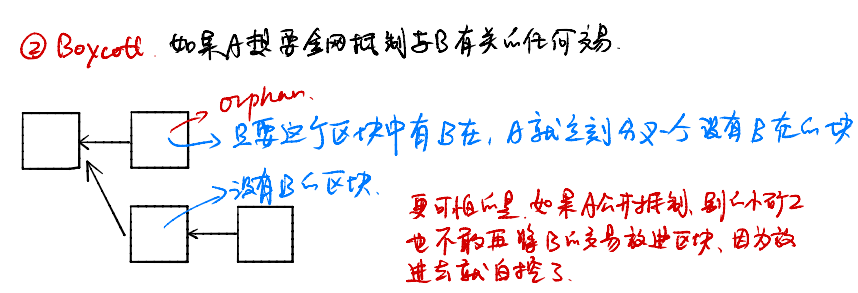 ② Boycott. 如果A想要全网抵制与B有关的任何交易.
orphan.
只要这个区块中有B在, A就立刻分叉一个没有B在的块
没有B的区块.
更可怕的是, 如果A公开抵制, 别的小矿工
也不敢再将B的交易放进区块, 因为放
进去就白挖了.